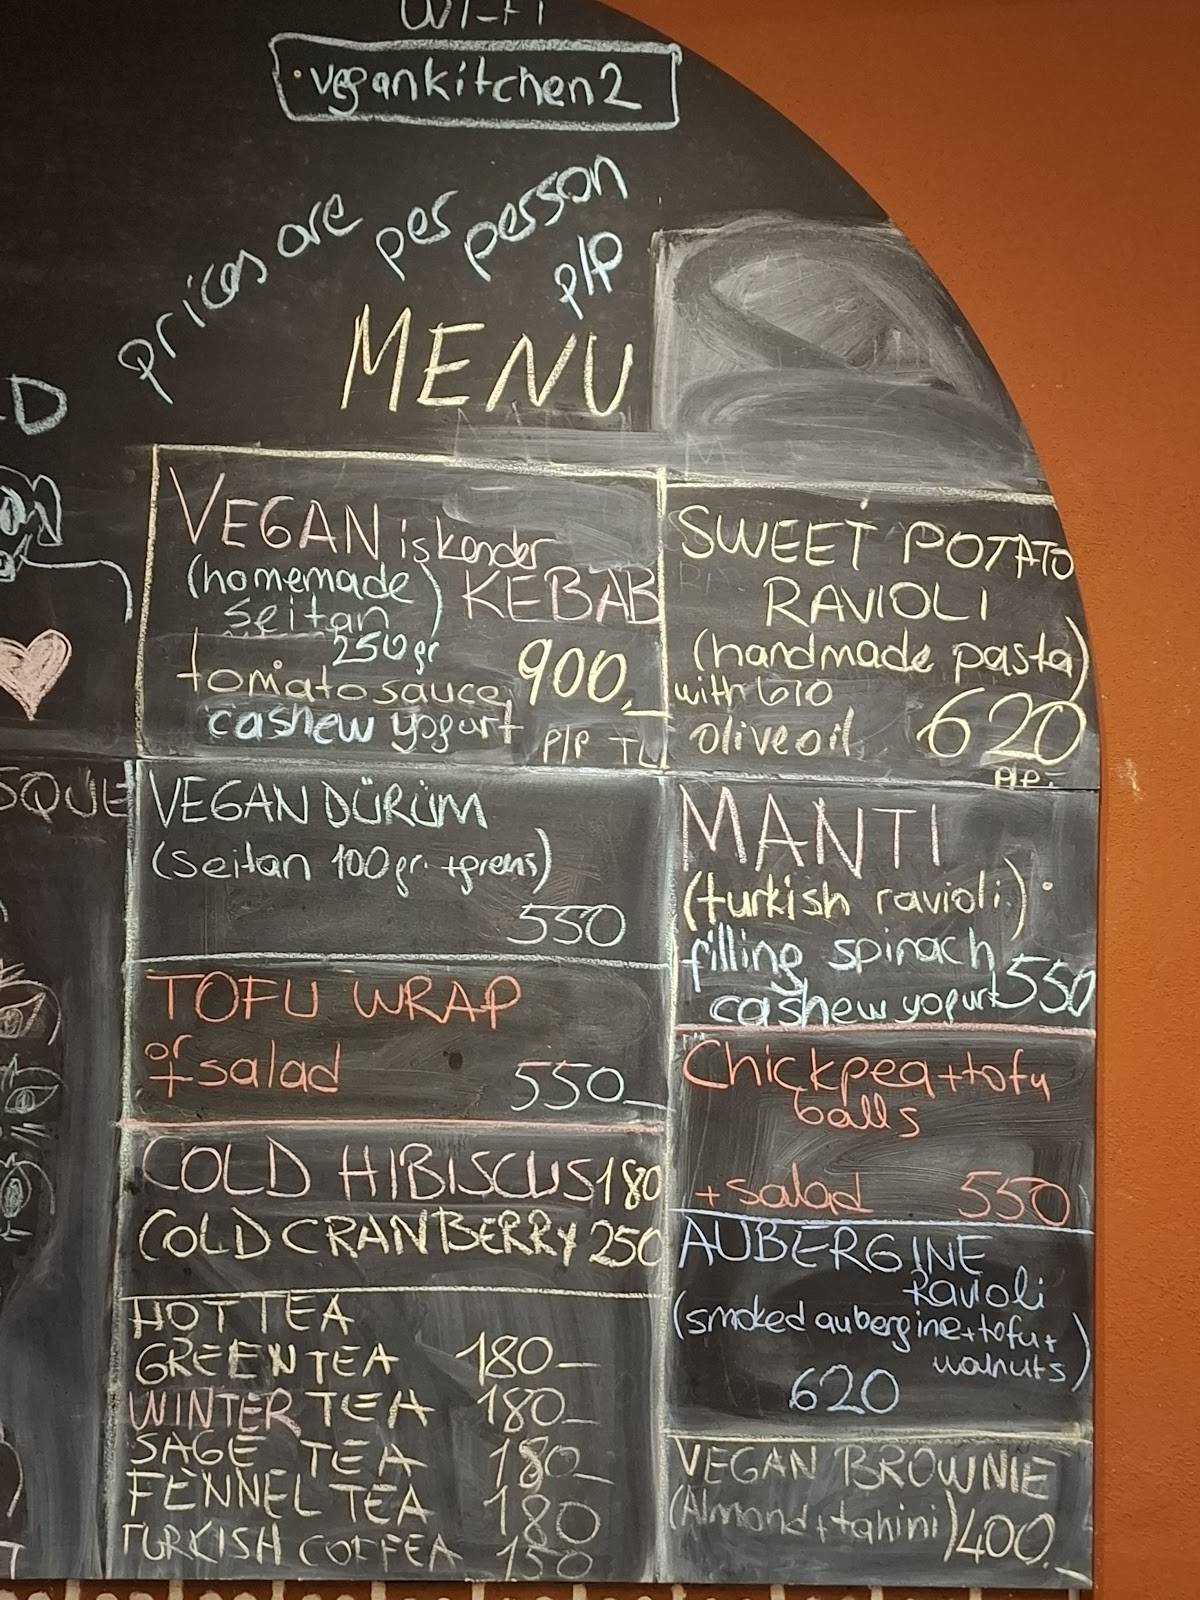 Wi-Fi
·vegankitchen2
prices are per person
P/P
MENU
VEGAN iskender
(homemade
seitan) KEBAB
250gr
tomato sauce, 900,-
cashew yogurt P/P TL
SWEET POTATO
RAVIOLI
(handmade pasta)
with bio
olive oil 620
P/P.-
SQUE
VEGAN DÜRÜM
(Seitan 100gr. +greens)
550
MANTI
(turkish ravioli)
filling spinach
cashew yogurt 550
TOFU WRAP
or
+salad 550-
Chickpea+tofu
balls
+salad 550
COLD HIBISCUS 180
COLD CRANBERRY 250
AUBERGINE
Ravioli
(smoked aubergine+tofu+
walnuts)
620
HOT TEA
GREEN TEA 180-
WINTER TEA 180-
SAGE TEA 180-
FENNEL TEA 180
TURKISH COFFEA 150
VEGAN BROWNIE
(Almond+tahini) 400.-